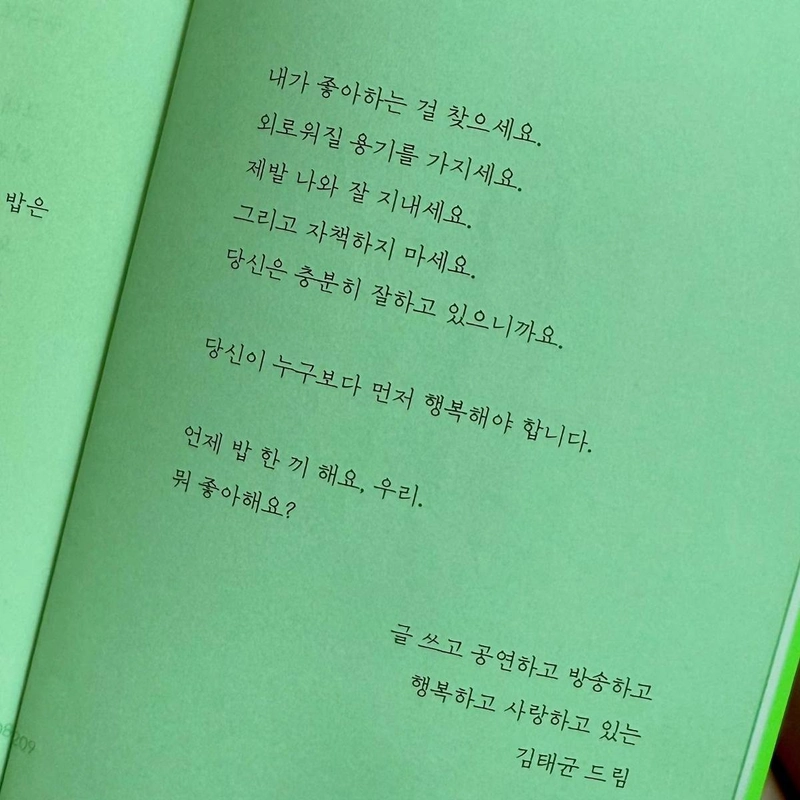 밥은
내가 좋아하는 걸 찾으세요.
외로워질 용기를 가지세요.
제발 나와 잘 지내세요.
그리고 자책하지 마세요.
당신은 충분히 잘하고 있으니까요.
당신이 누구보다 먼저 행복해야 합니다.
언제 밥 한 끼 해요, 우리.
뭐 좋아해요?
글 쓰고 공연하고 방송하고
행복하고 사랑하고 있는
김태균 드림